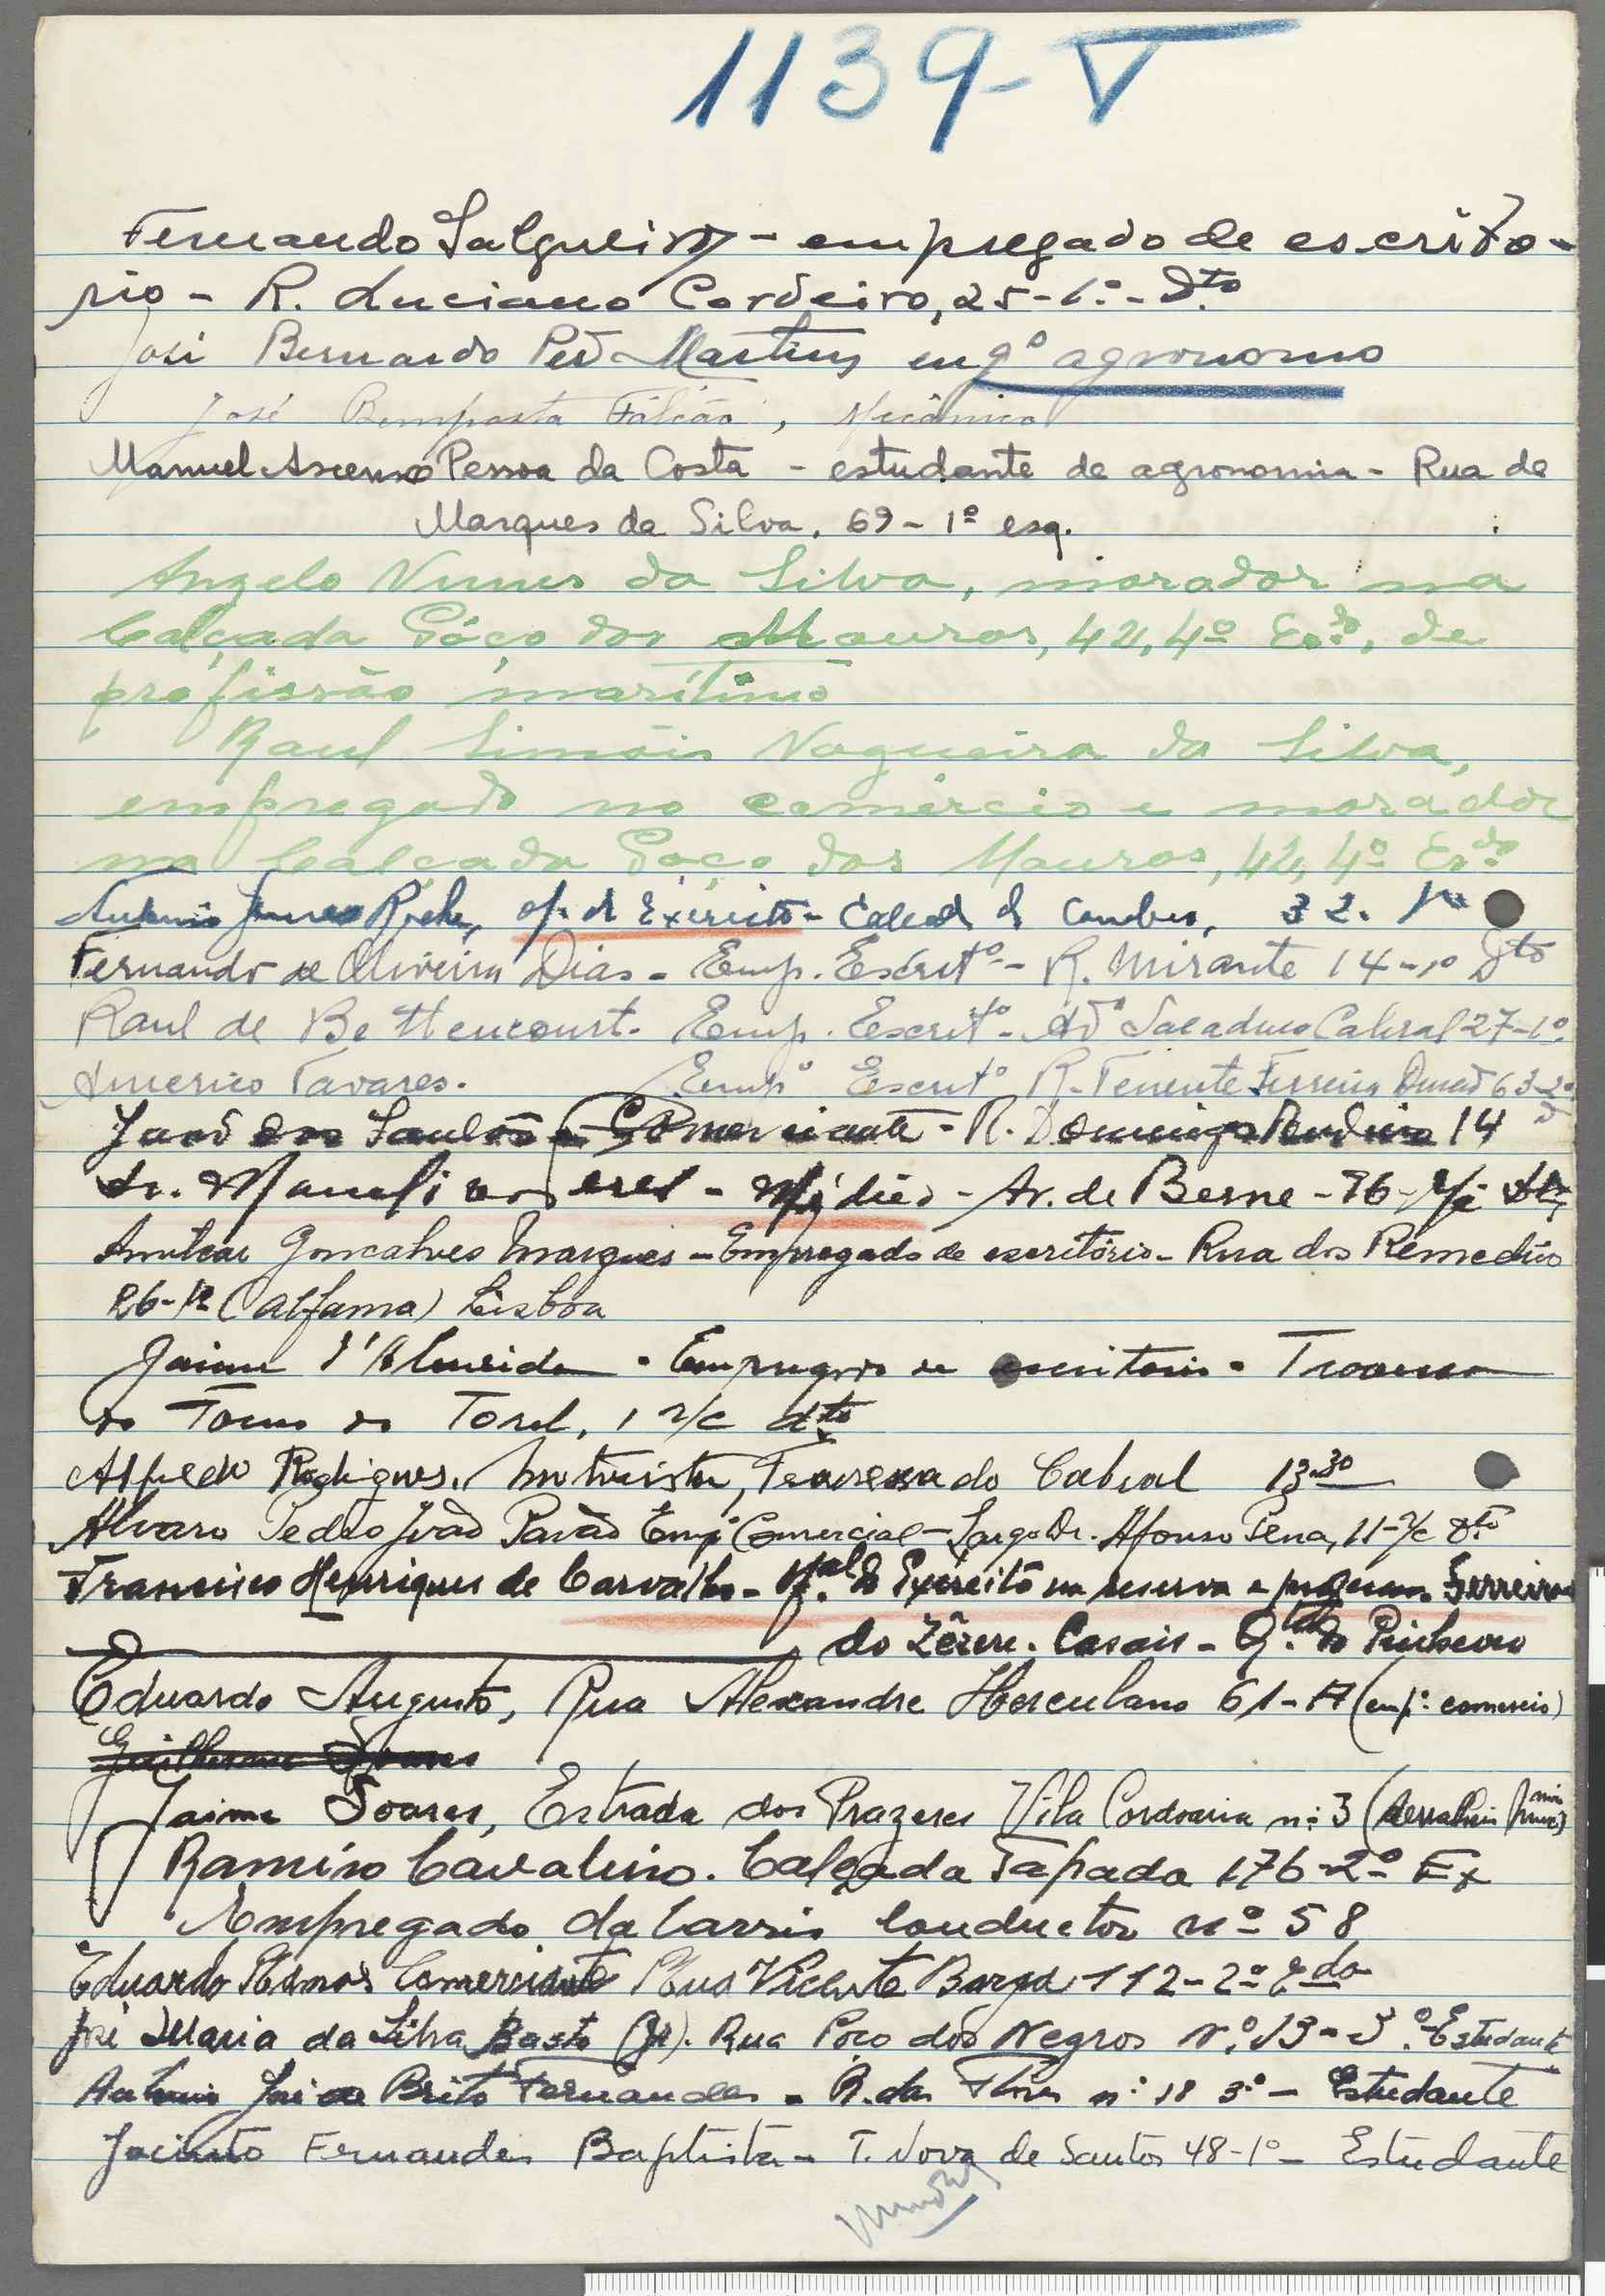 1139-V
Fernando Salgueiro - empregado de escritó-
rio - R. Luciano Cordeiro, 25-1º-Dto
José Bernardo Martins engº agronomo
José Bemposta Falcão, Mecânico
Manuel Ascenso Pessoa da Costa - estudante de agronomia - Rua de
Marques da Silva, 69-1º esq.
Angelo Nunes da Silva, morador na
Calçada Pôço dos Mouros, 42, 4º Esdo, de
profissão marítimo
Raul Simóis Nogueira da Silva,
empregado no comércio e morador
na Calçada Poço dos Mouros, 42, 4º Esdo
of. do Exército - 32. 1º
Fernando de Oliveira Dias - Emp. Escritº - R. Mirante 14-1º Dto
Raul de Bettencourt. Emp. Escritº - Avª Sacadura Cabral 27-1º
Americo Tavares. Empº Escritº R. Tenente Ferreira Durão 63-2º
D
dos Santos - Comerciante - R. Domingos 14
dr. Manuel - Médico - Av. de Berne - 36 r/c
Amilcar Goncalves Marques - Empregado de escritório - Rua dos Remedios
26-1º (Alfama) Lisboa
Jaime d'Almeida - Empregado de escritorio - Travessa
do do Torel, 1 r/c dto
Alfredo Rodrigues. Motorista, Travessa do Cabral 13-3º
Alvaro Pedro João Pavão Empº Comercial - Largo Dr. Afonso Pena, 11-r/c dto
Francisco Henriques de Carvalho - Of.al do Exército na reserva e Ferreira
do Zêzere. Casais - Q.ta do Pinheiro
Eduardo Augusto, Rua Alexandre Herculano 61-A (empº comercio)
Guilherme Soares
Jaime Soares, Estrada dos Prazeres Vila Cordoaria nº 3
Ramiro Cavalino. Calçada Tapada 176-2º Ex
Empregado da Carris Conductor nº 58
Eduardo Ramos Comerciante Rua Vicente Borga 112-2º Edo
José Maria da Silva Basto (Jr). Rua Poço dos Negros Nº 13-3º - Estudante
Antonio José de Brito Fernandes - R. das Flores nº 18 3º - Estudante
Jacinto Fernandes Baptista - T. Nova de Santos 48-1º - Estudante